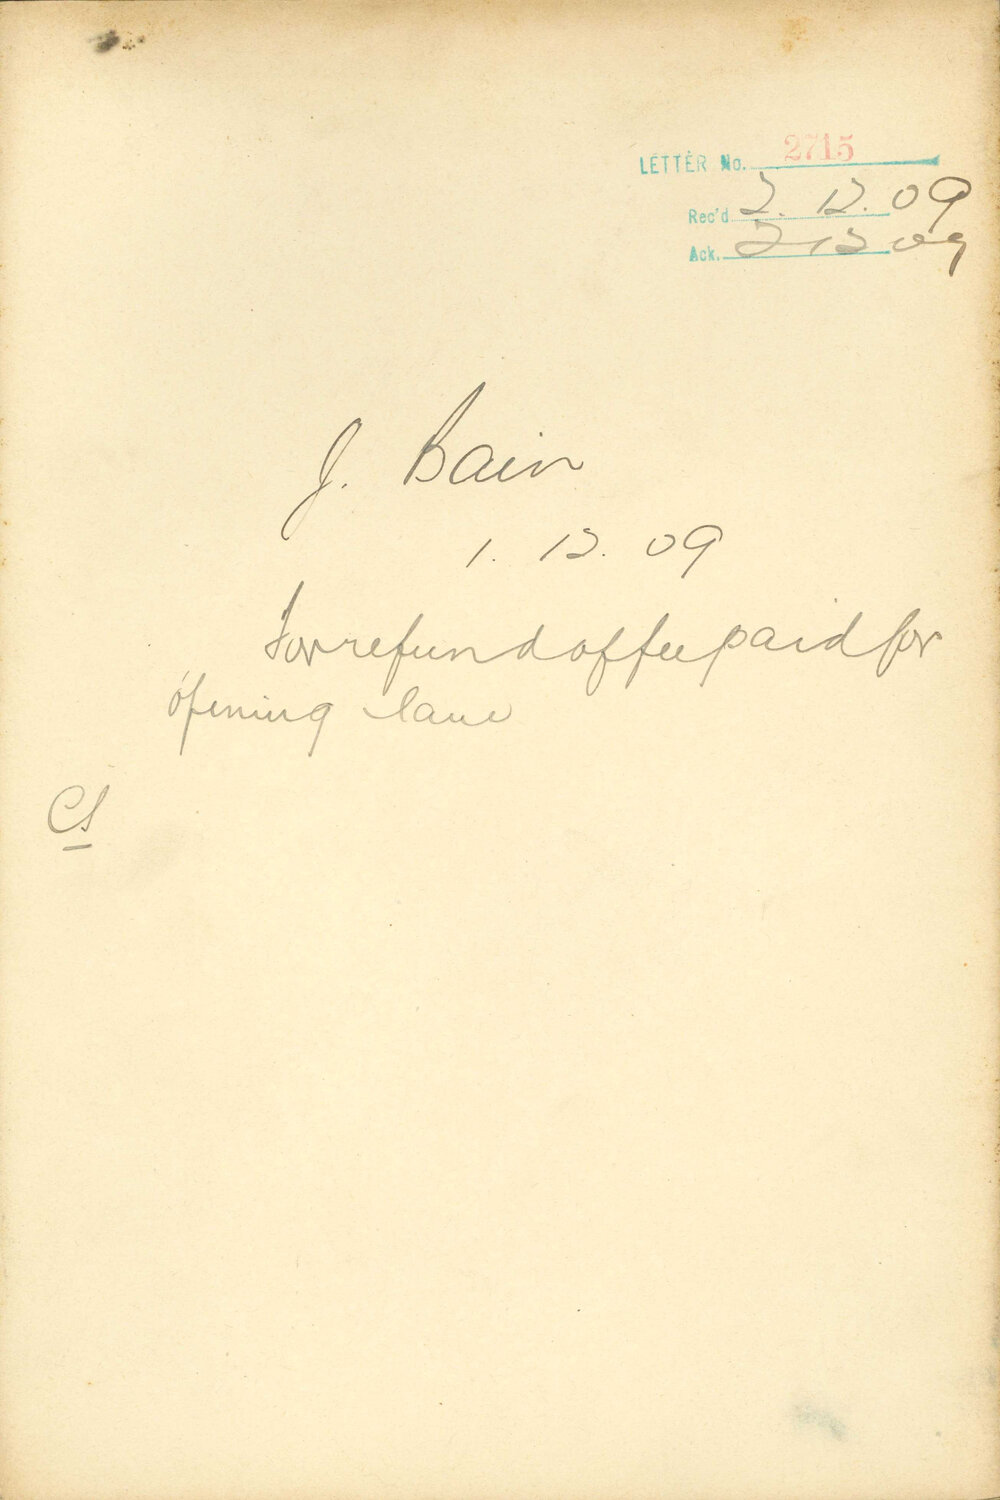 LETTER No. 2715
Rec'd 2. 12. 09
Ack. 2 12 09
J. Bain
1. 12. 09
For refund of fee paid for
opening lane
CS